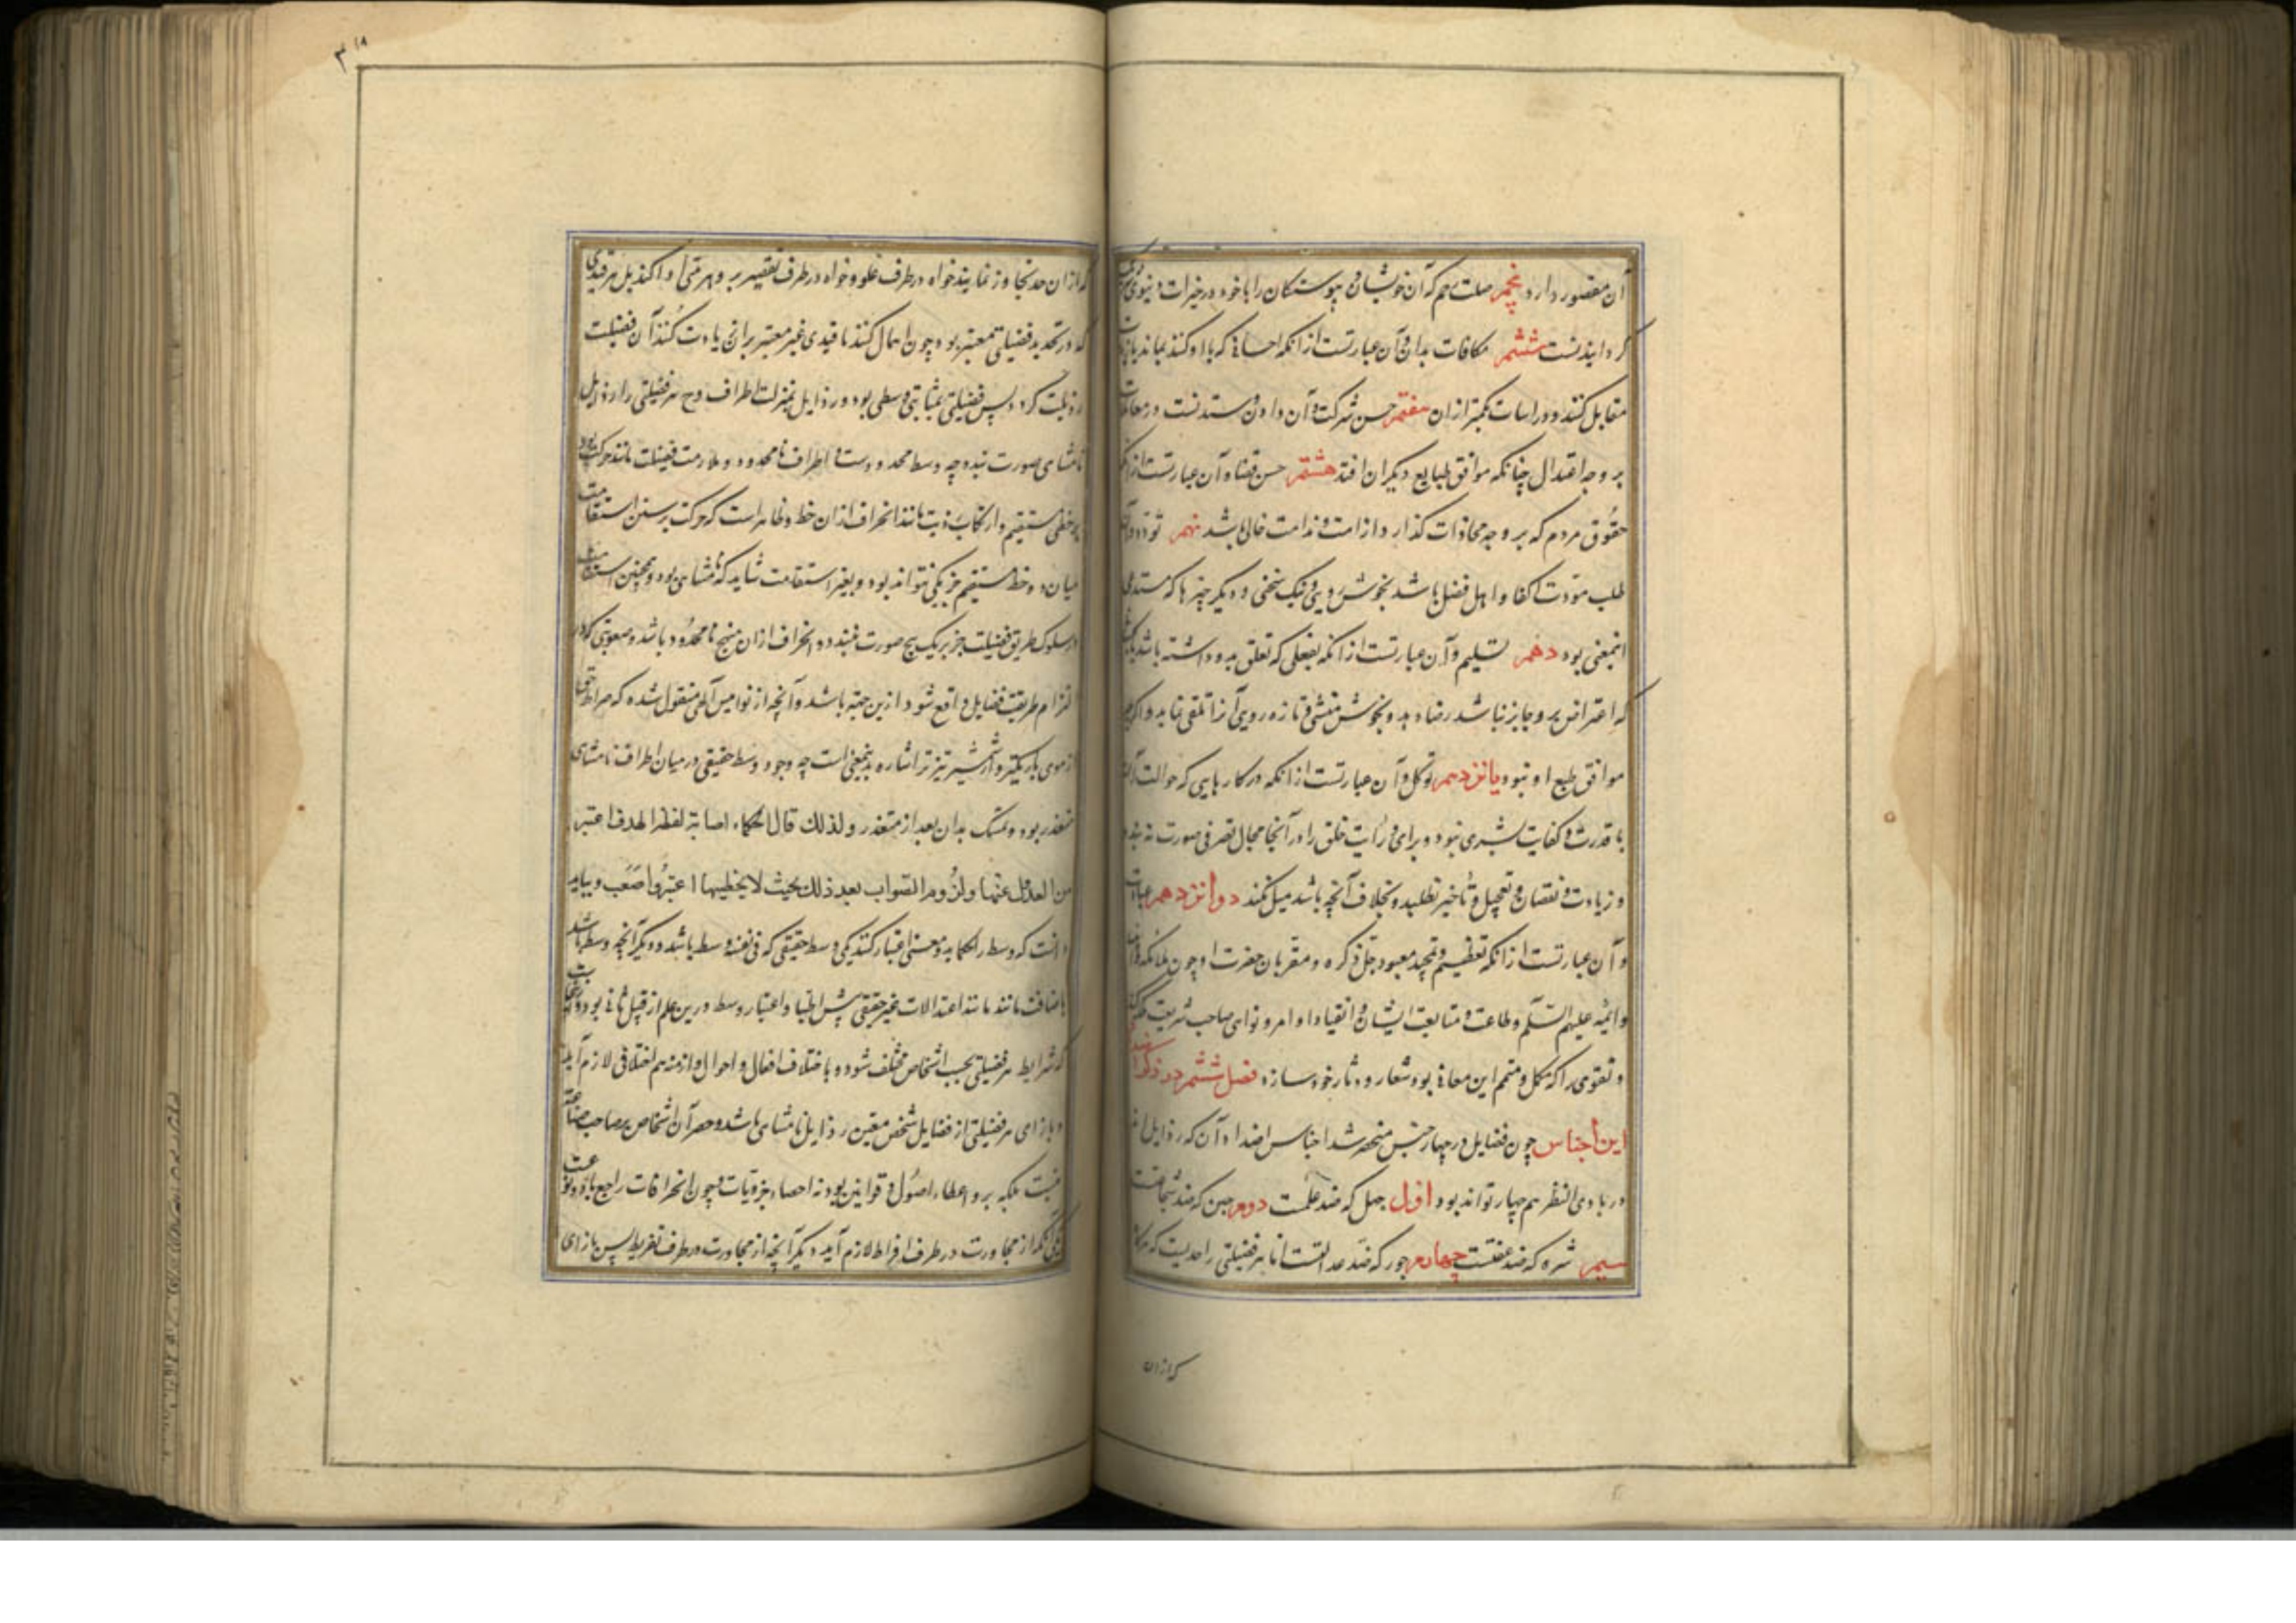 آن مقصور دارد پنجم صلت رحم که آن خویشان و پیوستگان را با خود در خیرات دنیوی
گردانیدنست ششم مکافات بدان و آن عبارتست از آنکه احسانی که با او کنند بمانند یا زیادت
مقابل کنند و در اساءت بکمتر از ان هفتم حسن شرکت و آن دادن و ستدنست در معاملات
بر وجه اعتدال چنانکه موافق طبایع دیگران افتد هشتم حسن قضا و آن عبارتست از آنکه
حقوق مردم که بر وجه مجازات گذارد از منت و ندامت خالی باشد نهم تودد و آن
طلب مودت اکفا و اهل فضل باشد بخوش رویی و نیک سخنی و دیگر چیزها که مستدعی
اینمعنی بود دهم تسلیم و آن عبارتست از آنکه بفعلی که تعلق بدو داشته باشد
که اعتراض برو جایز نباشد رضا دهد و بخوش منشی و تازه رویی آنرا تلقی نماید و اگرچه
موافق طبع او نبود یانزدهم توکل و آن عبارتست از آنکه در کارهایی که حوالت آن
با قدرت و کفایت بشری نبود و برای و رأیت خلق را در آنجا مجال تصرفی صورت نه بندد
و زیادت و نقصان و تعجیل و تأخیر نطلبد و بخلاف آنچه باشد میل نکند دوانزدهم عبادت
و آن عبارتست از آنکه تعظیم و تمجید معبود جل ذکره و مقربان حضرت او چون ملائکه و انبیا
و ائمه علیهم السلم و طاعت و متابعت ایشان و انقیاد اوامر و نواهی صاحب شریعت
و تقوی را که مکمل و متمم این معانی بود شعار و دثار خود سازد فصل ششم در ذکر اضداد
این اجناس چون فضایل در چهار جنس منحصر شد اجناس اضداد آن که رذایل اند
در بادی النظر هم چهار تواند بود اول جهل که ضد علمست دوم جبن که ضد شجاعتست
سیم شره که ضد عفتست چهارم جور که ضد عدالتست اما هر فضیلتی را حدیست که هرگاه
که ازان
۳۱۸
که از ان حد تجاوز نمایند خواه در طرف غلو و خواه در طرف تقصیر برذیلتی ادا کند پس هر قیدی
که در تحدید فضیلتی معتبر بود چون اهمال کنند یا قیدی غیر معتبر بران زیادت کنند آن فضیلت
رذیلت گردد پس فضیلتی بمثابتی وسطی بود و رذایل بمنزلت اطراف و هر فضیلتی را رذایل
نامتناهی صورت بندد چه وسط محدودست و اطراف نامحدود و ملازمت فضیلت مانند حرکت بود
بر خطی مستقیم و ارتکاب رذیلت مانند انحراف ازان خط و ظاهر است که حرکت بر سنن استقامت
میان دو خط مستقیم جز یکی نتواند بود و بغیر استقامت شاید که نامتناهی بود و همچنین استقامت
در سلوک طریق فضیلت جز بر یک نهج صورت نبندد و انحراف ازان منهج نامحدود باشد و صعوبتی که در
التزام طریقت فضایل واقع شود ازین جهته باشد و آنچه از نوامیس آلهی منقول شده که صراط
از موی باریکتر و از شمشیر تیز تر اشاره بدینمعنی است چه وجود وسط حقیقی در میان اطراف نامتناهی
متعذر بود و تمسک بدان بعد از متعذر و لذلک قال الحکماء اصابة نقطة الهدف اعسر
من العدول عنها و لزوم الصواب بعد ذلك بحیث لا یخطیها اعسر و اصعب و بباید
دانست که وسط را حکما به دو معنی اعتبار کنند یکی وسط حقیقی که فی نفسه وسط باشد و دیگر آنچه وسط باشد
باضافت مانند مانند اعتدالات غیر حقیقی پیش اطبا و اعتبار وسط درین علم از قبیل ثانی بود
که شرایط هر فضیلتی بحسب اشخاص مختلف شود و باختلاف افعال و احوال و ازمنه هم اختلافی لازم آید
و بازای هر فضیلتی از فضایل شخص معین رذایل نامتناهی باشد و حصر آن اشخاص بر صاحب صناعت
نیست بلکه برو اعطاء اصول و قوانین بود نه احصاء جزویات و چون انحرافات راجع با دو نوع
یکی آنکه از مجاورت در طرف افراط لازم آید و دیگر آنچه از مجاورت در طرف تفریط پس بازای